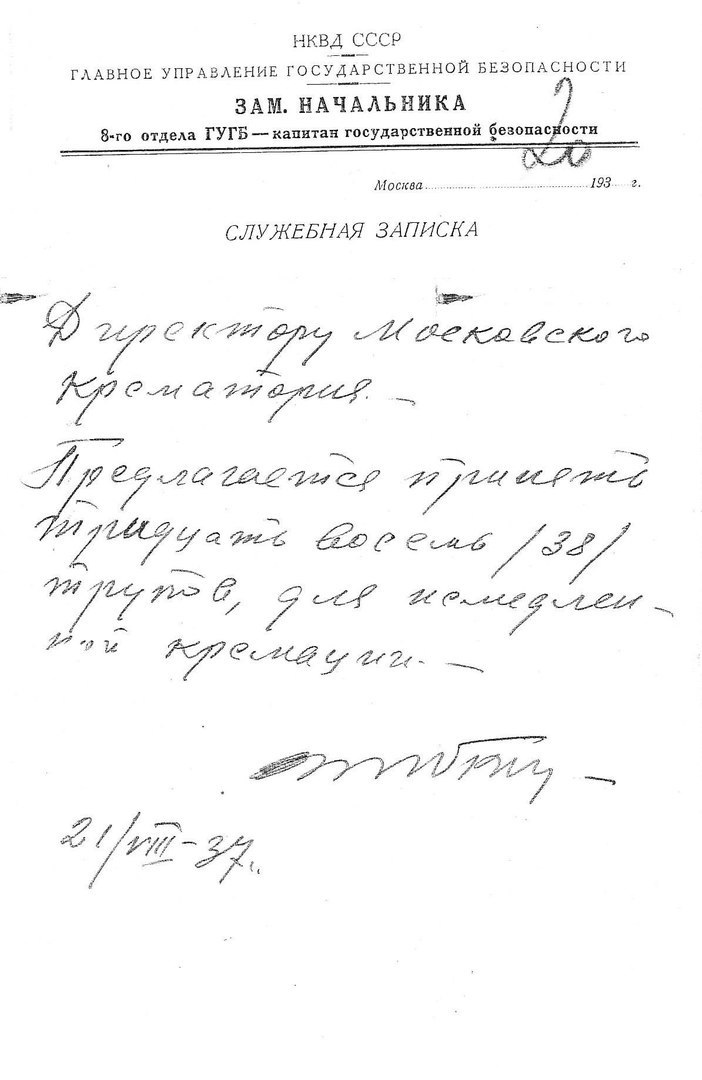 НКВД СССР
ГЛАВНОЕ УПРАВЛЕНИЕ ГОСУДАРСТВЕННОЙ БЕЗОПАСНОСТИ
ЗАМ. НАЧАЛЬНИКА
8-го отдела ГУГБ — капитан государственной безопасности
Москва 193 г.
СЛУЖЕБНАЯ ЗАПИСКА
Директору Московского
Крематория. —
Предлагается принять
тридцать восемь /38/
трупов, для немедлен-
ной кремации. —
21/VIII-37г.